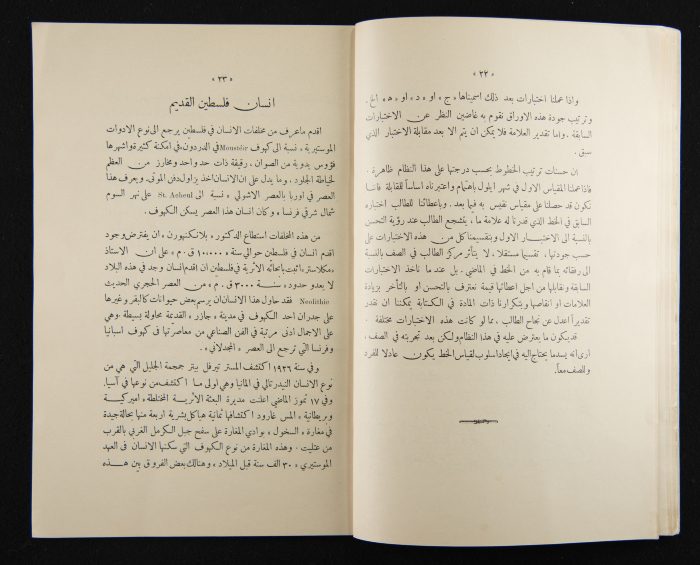 «٢٢»
واذا عملنا اختبارات بعد ذلك اسميناها «ج» او «د» او «ه» الخ.
وترتيب جودة هذه الاوراق نقوم به غامضين النظر عن الاختبارات
السابقة. واما تقدير العلامة فلا يمكن ان يتم الا بعد مقابلة الاختبار الذي
سبق.
ان حسنات ترتيب الخطوط بحسب درجتها على هذا النظام ظاهرة.
فاذا عملنا المقياس الاول في شهر ايلول باهتمام واعتبرناه اساساً للمقابلة فاننا
نكون قد حصلنا على مقياس نقيس به فيما بعد. وباعطائنا للطالب اختباره
السابق في الخط الذي قدرنا له علامة ما، يتشجع الطالب عند رؤية التحسن
بالنسبة الى الاختبار الاول وبتقسيمنا كل من هذه الاختبارات على
حسب جودتها، تقسيما مستقلا، لا يتأثر مركز الطالب في الصف بالنسبة
الى رفقائه بما قام به من الخط في الماضي. بل عند ما نأخذ الاختبارات
السابقة ونقابلها من اجل اعطائها قيمة نعترف بالتحسن او بالتأخر بزيادة
العلامات او انقاصها وبتكرارنا ذات المادة في الكتابة يمكننا ان نقدر
تقديراً اعدل عن نجاح الطالب، مما لو كانت هذه الاختبارات مختلفة
قد يكون ما يعترض عليه في هذا النظام ولكن بعد تجربته في الصف،
ارى انه يسد ما يحتاج اليه في ايجاد اسلوب لقياس الخط يكون عادلا للفرد
وللصف معاً.
«٢٣»
انسان فلسطين القديم
اقدم ما عرف من مخلفات الانسان في فلسطين يرجع الى نوع الادوات
الموستيرية، نسبة الى كهوف Moustéir في الدردون، في امكنة كثيرة واشهرها
فؤوس يدوية من الصوان، رقيقة ذات حد واحد ومخارز من العظم
لخياطة الجلود، وما يدل على ان الانسان اخذ يزاول دفن الموتى. ويعرف هذا
العصر في اوربا بالعصر الاشولي، نسبة الى St. Acheul على نهر السوم
شمال شرقي فرنسا، وكان انسان هذا العصر يسكن الكهوف.
من هذه المخلفات استطاع الدكتور «بلانكنهورن» ان يفترض وجود
اقدم انسان في فلسطين حوالي سنة ١٠٠٠٠ ق.م، على ان الاستاذ
«مكلاستر» اثبت بابحاثه الاثرية في فلسطين ان اقدم انسان وجد في هذه البلاد
لا يعدو حدود سنة ٣٠٠٠ ق.م من العصر الحجري الحديث
Neolithic فقد حاول هذا الانسان ان يرسم بعض حيوانات كالبقر وغيرها
على جدران احد الكهوف في مدينة «جازر» القديمة محاولة بسيطة، وهي
على الاجمال ادنى مرتبة في الفن الصناعي من معاصرتها في كهوف اسبانيا
وفرنسا التي ترجع الى العصر «المجدلاني».
وفي سنة ١٩٢٦ اكتشف المستر تيرفل بيتر جمجمة الجليل التي هي من
نوع الانسان النيدرتالي في المانيا وهي اولى ما اكتشف من نوعها في آسيا.
وفي ١٧ تموز الماضي اعلنت مديرة البعثة الاثرية المختلطة «اميركية
وبريطانية» المس غارود اكتشافها ثمانية هياكل بشرية اربعة منها بحالة جيدة
في مغارة «السخول» بوادي المغارة على سفح جبل الكرمل الغربي بالقرب
من عتليت. وهذه المغارة من نوع الكهوف التي سكنها الانسان في العهد
الموستيري «٣٠ الف سنة قبل الميلاد» وهنالك بعض الفروق بين هذه